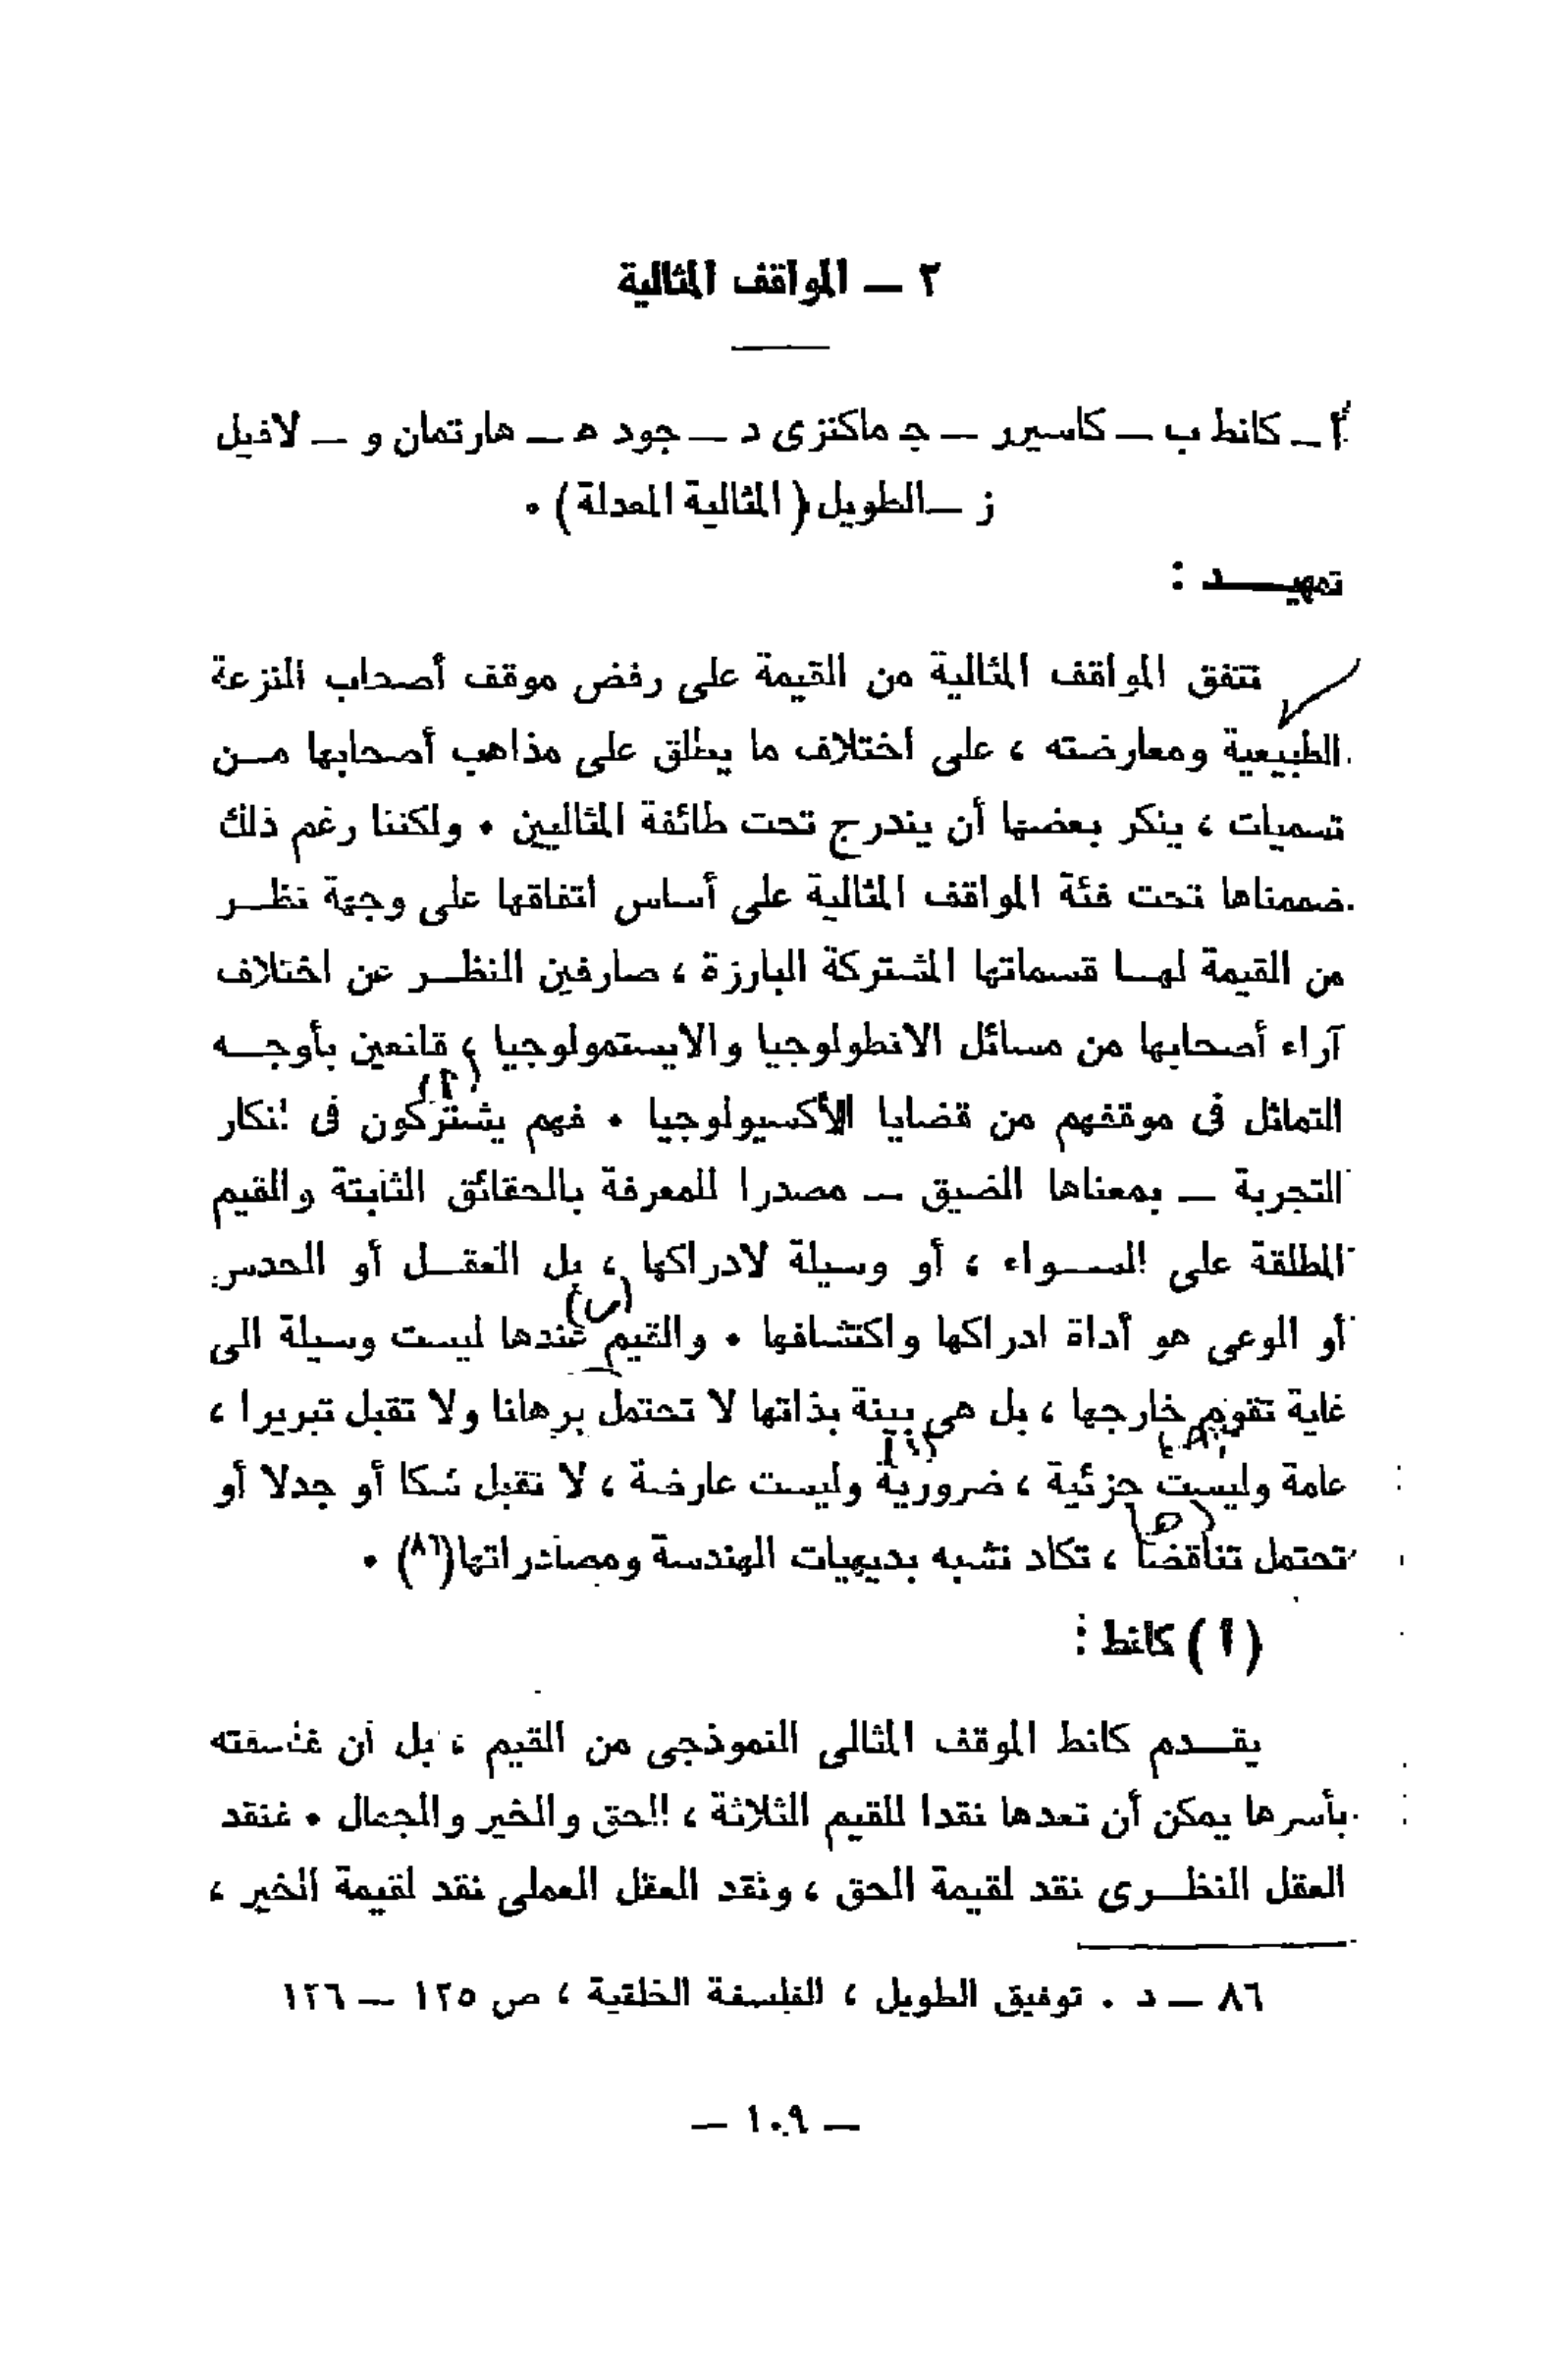 ٢ — المواقف المثالية
أ — كانط ب — كاسيرر — ج ماكنزى د — جود ه — هارتمان و — لافيل
ز — الطويل ( المثالية المعدلة ) ٠
تمهيــــد :
تتفق المواقف المثالية من القيمة على رفض موقف أصحاب النزعة
الطبيعية ومعارضته ، على اختلاف ما يطلق على مذاهب أصحابها مــن
تسميات ، ينكر بعضها أن يندرج تحت طائفة المثاليين ٠ ولكننا رغم ذلك
ضممناها تحت فئة المواقف المثالية على أساس اتفاقها على وجهة نظــر
من القيمة لهــا قسماتها المشتركة البارزة ، صارفين النظــر عن اختلاف
آراء أصحابها من مسائل الانطولوجيا والابستمولوجيا ، قانعين بأوجــه
(أ)
التماثل فى موقفهم من قضايا الأكسيولوجيا ٠ فهم يشتركون فى انكار
التجربة — بمعناها الضيق — مصدرا للمعرفة بالحقائق الثابتة والقيم
المطلقة على الســواء ، أو وسيلة لادراكها ، بل العقــل أو الحدس
(ب)
أو الوعى هو أداة ادراكها واكتشافها ٠ والقيم عندها ليست وسيلة الى
غاية تقوم خارجها ، بل هى بينة بذاتها لا تحتمل برهانا ولا تقبل تبريرا ،
عامة وليست جزئية ، ضرورية وليست عارضة ، لا تقبل شكا أو جدلا أو
(ه)
تحتمل تناقضا ، تكاد تشبه بديهيات الهندسة ومصادراتها(٨٦) ٠
( أ ) كانط :
يقــدم كانط الموقف المثالى النموذجى من القيم ، بل ان فلسفته
بأسرها يمكن أن تعدها نقدا للقيم الثلاثة ، الحق والخير والجمال ٠ فنقد
العقل النظــرى نقد لقيمة الحق ، ونقد العقل العملى نقد لقيمة الخير ،
٨٦ — د . توفيق الطويل ، الفلسفة الخلقية ، ص ١٢٥ — ١٢٦
— ١٠٩ —